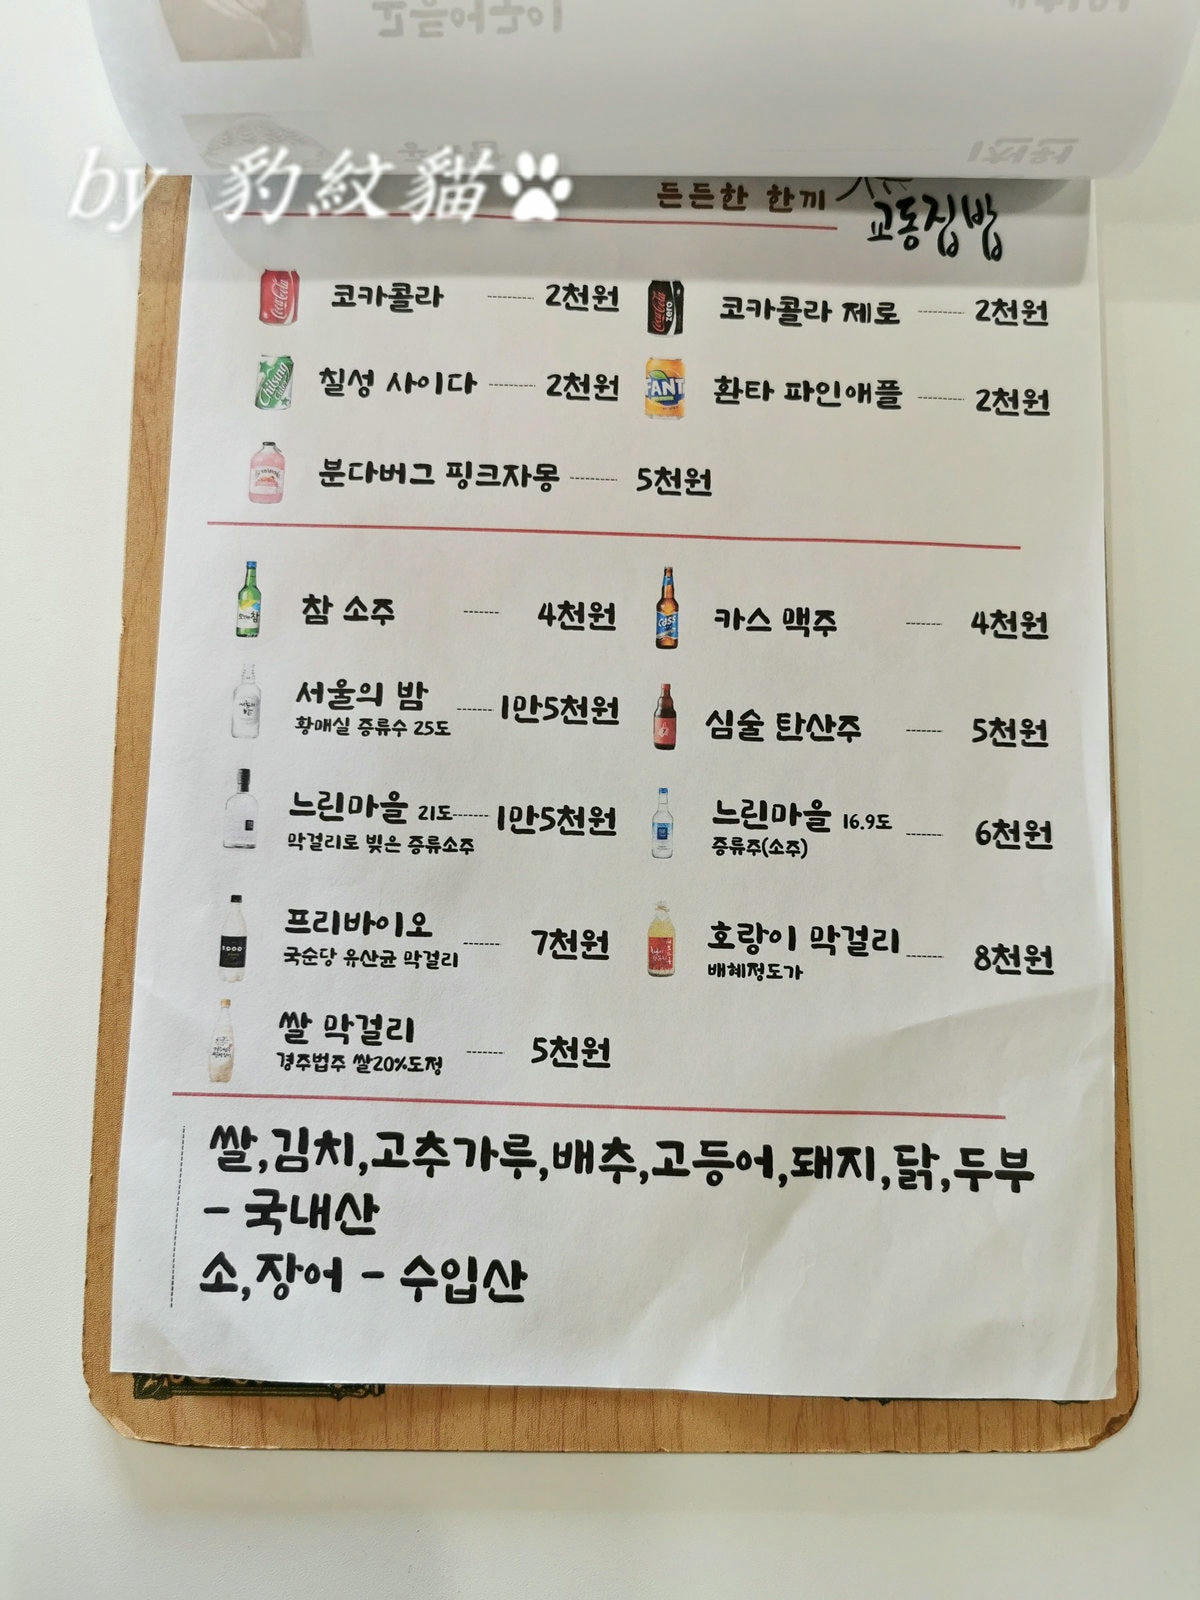 by 豹紋貓
든든한 한끼
교동집밥
코카콜라 2천원
코카콜라 제로 2천원
칠성 사이다 2천원
환타 파인애플 2천원
분다버그 핑크자몽 5천원
참 소주 4천원
카스 맥주 4천원
서울의 밤 1만5천원
황매실 증류수 25도
심술 탄산주 5천원
느린마을 21도 1만5천원
막걸리로 빚은 증류소주
느린마을 16.9도 6천원
증류주(소주)
프리바이오 7천원
국순당 유산균 막걸리
호랑이 막걸리 8천원
배혜정도가
쌀 막걸리 5천원
경주법주 쌀20%도정
쌀,김치,고추가루,배추,고등어,돼지,닭,두부
- 국내산
소,장어 - 수입산